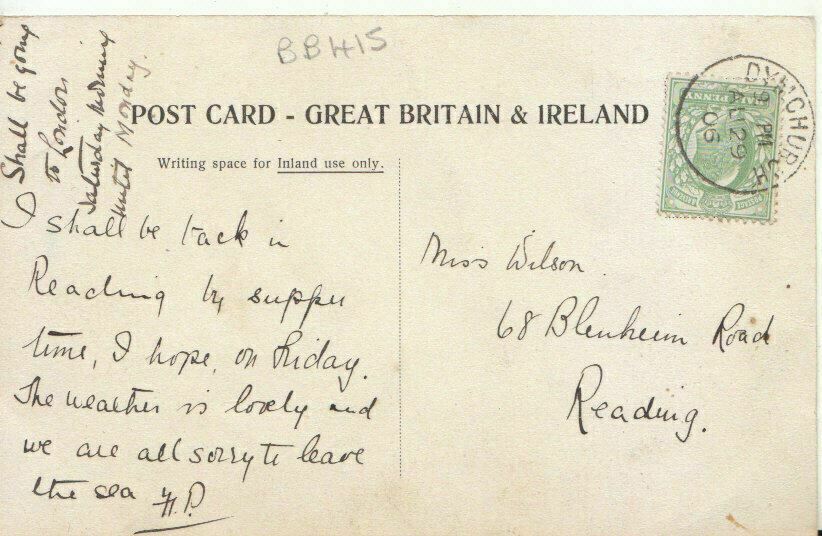 BB415
Shall be going
to London
Saturday morning
until Monday.
POST CARD - GREAT BRITAIN & IRELAND
Writing space for Inland use only.
I shall be back in
Reading by supper
time, I hope, on Friday.
The weather is lovely and
we are all sorry to leave
the sea H.P.
DYMCHURCH
PM
AU 29
06
Miss Wilson
68 Blenheim Road
Reading.